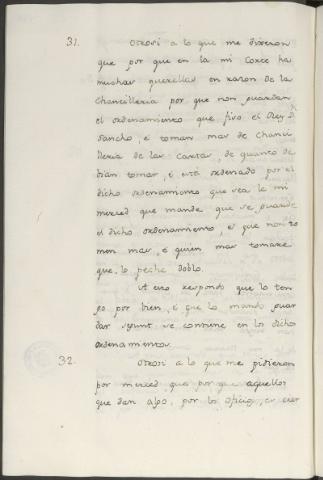 31. Otrosi a lo que me dixeron
que por que en la mi Corte ha
muchas querellas en razon de la
Chancilleria por que non guardan
el ordenamiento que fizo el Rey D.
Sancho, é toman mas de Chanci
lleria de las Cartas, de quanto de
bian tomar, é está ordenado por el
dicho ordenamiento que sea la mi
merced que mande que se guarde
el dicho ordenamiento, é que non to
men mas, é quien mas tomare
que lo peche doblo.
A esto respondo que lo ten
go por bien, é que lo mando guar
dar segunt se contiene en los dicho
ordenamientos.
32. Otrosi a lo que me pidieron
por merced que por que aquellos
que dan algo, por los oficios, es cier